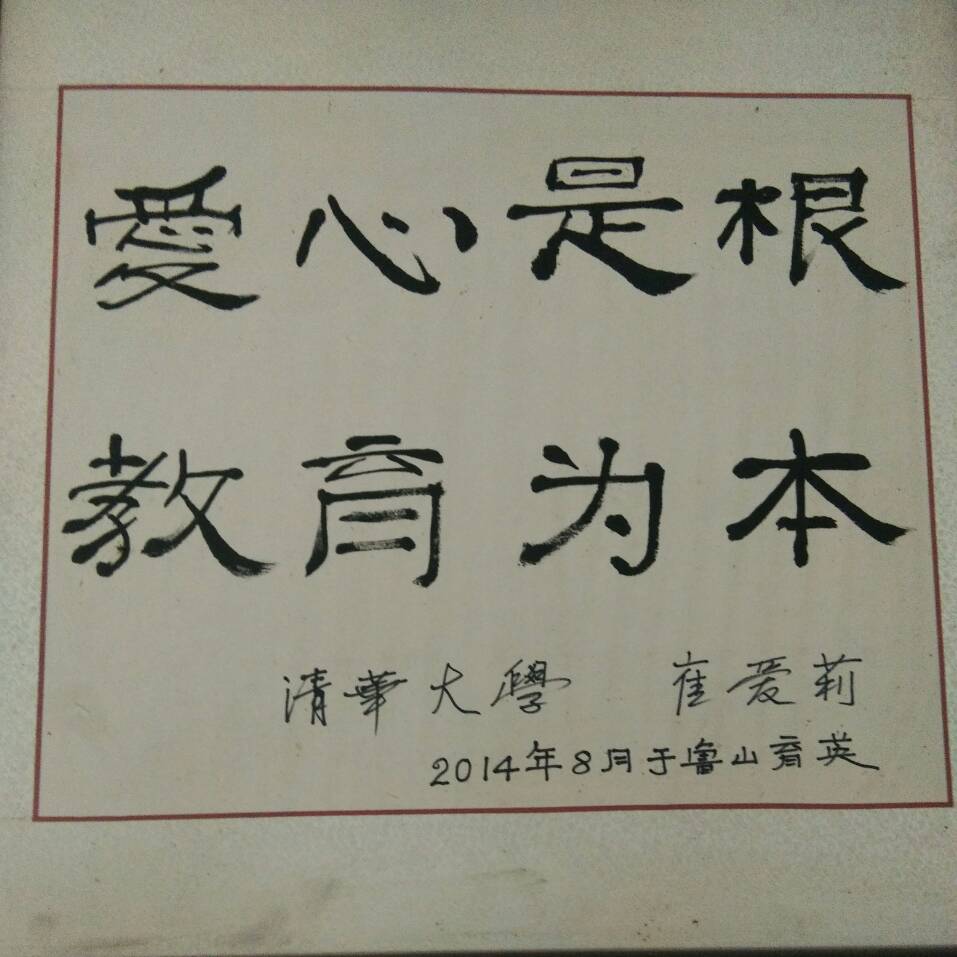 愛心是根
教育为本
清華大學 崔爱莉
2014年8月于鲁山育英